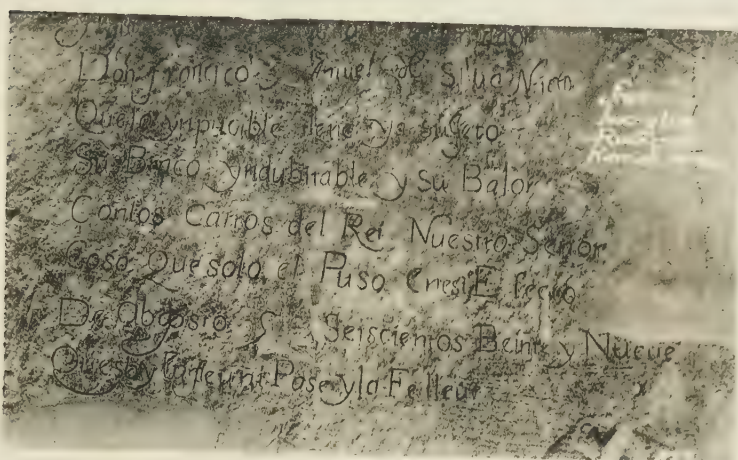 Don francico Manuel de silua Nieto
Que lo ynpucible tiene ya sujeto
Su Braco yndubitable y su Balor
Con los Carros del Rei Nuestro Señor
Cosa Que solo el Puso en este Efecto
De Abgosto Seiscientos Beinte y Nueue
Pase y la Fe lleue